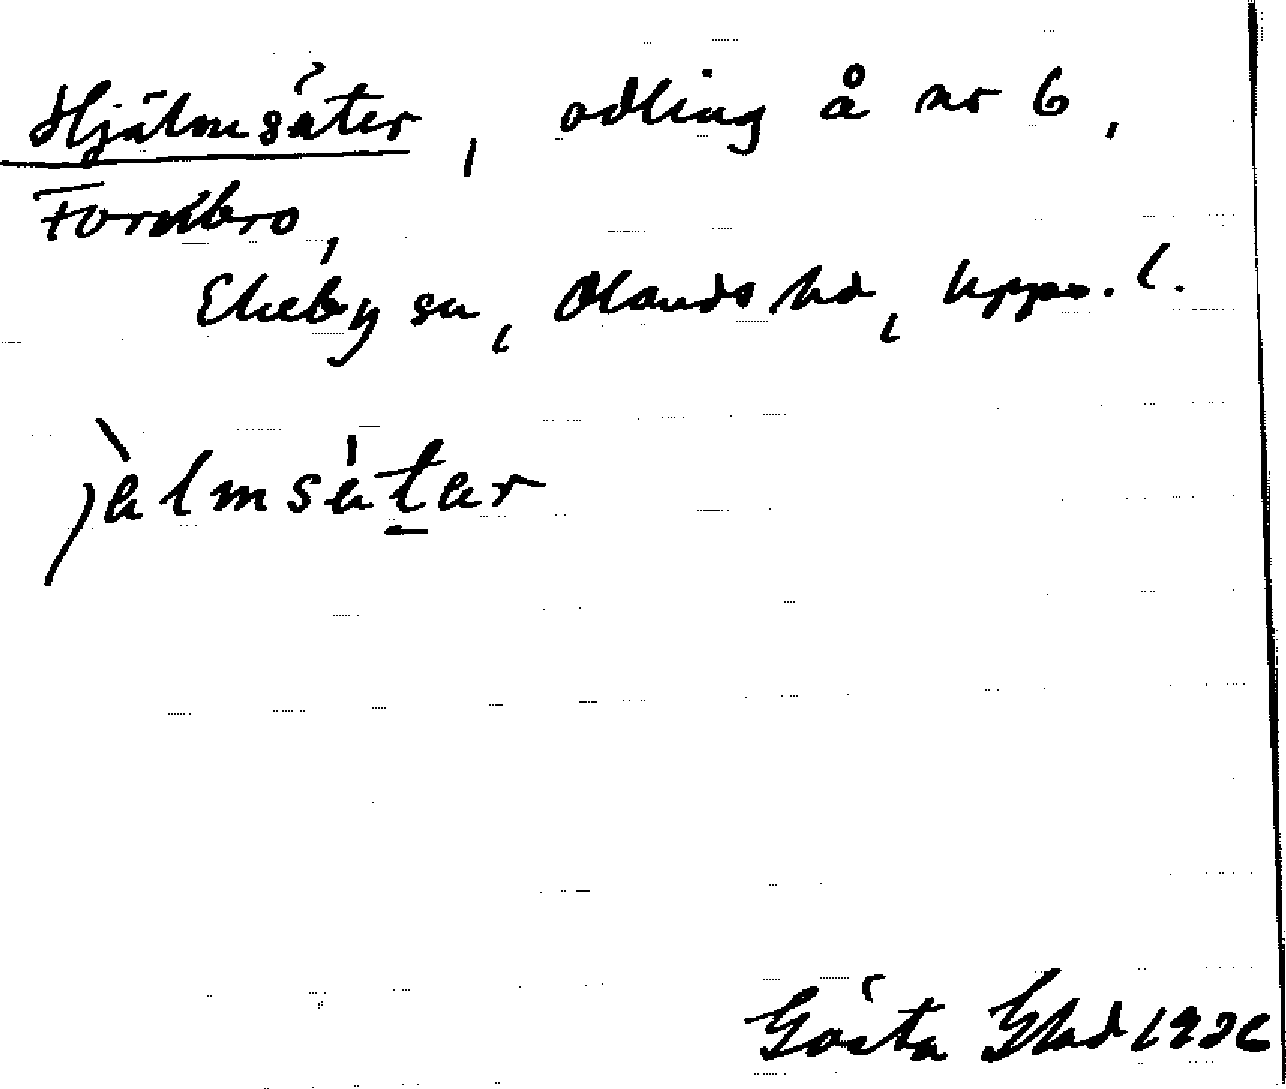 Hjälmsäter, odling å nr 6,
Forkbro,
Ekeby sn, Olands hd, Upps. l.
jàlmsátar
Gösta Glad 1926